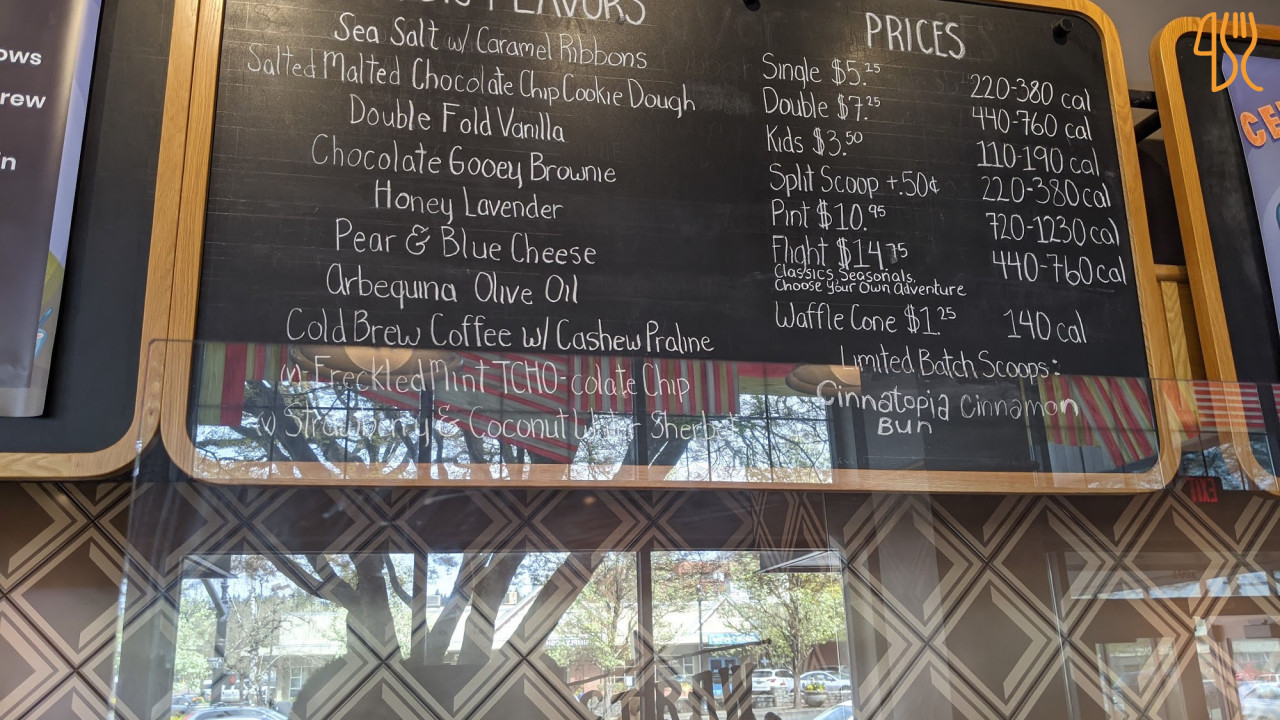 ows
rew
in
FLAVORS
Sea Salt w/ Caramel Ribbons
Salted Malted Chocolate Chip Cookie Dough
Double Fold Vanilla
Chocolate Gooey Brownie
Honey Lavender
Pear & Blue Cheese
Arbequina Olive Oil
Cold Brew Coffee w/ Cashew Praline
(v) Freckled Mint TCHO-colate Chip
(v) Strawberry & Coconut Water Sherbet
PRICES
Single $5.25 220-380 cal
Double $7.25 440-760 cal
Kids $3.50 110-190 cal
Split Scoop +.50¢ 220-380 cal
Pint $10.95 720-1230 cal
Flight $14.75 440-760 cal
Classics, Seasonals,
Choose Your Own Adventure
Waffle Cone $1.25 140 cal
Limited Batch Scoops:
Cinnatopia Cinnamon
Bun
CE
EXIT